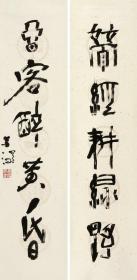 帶經耕綠野
留客醉黃昏